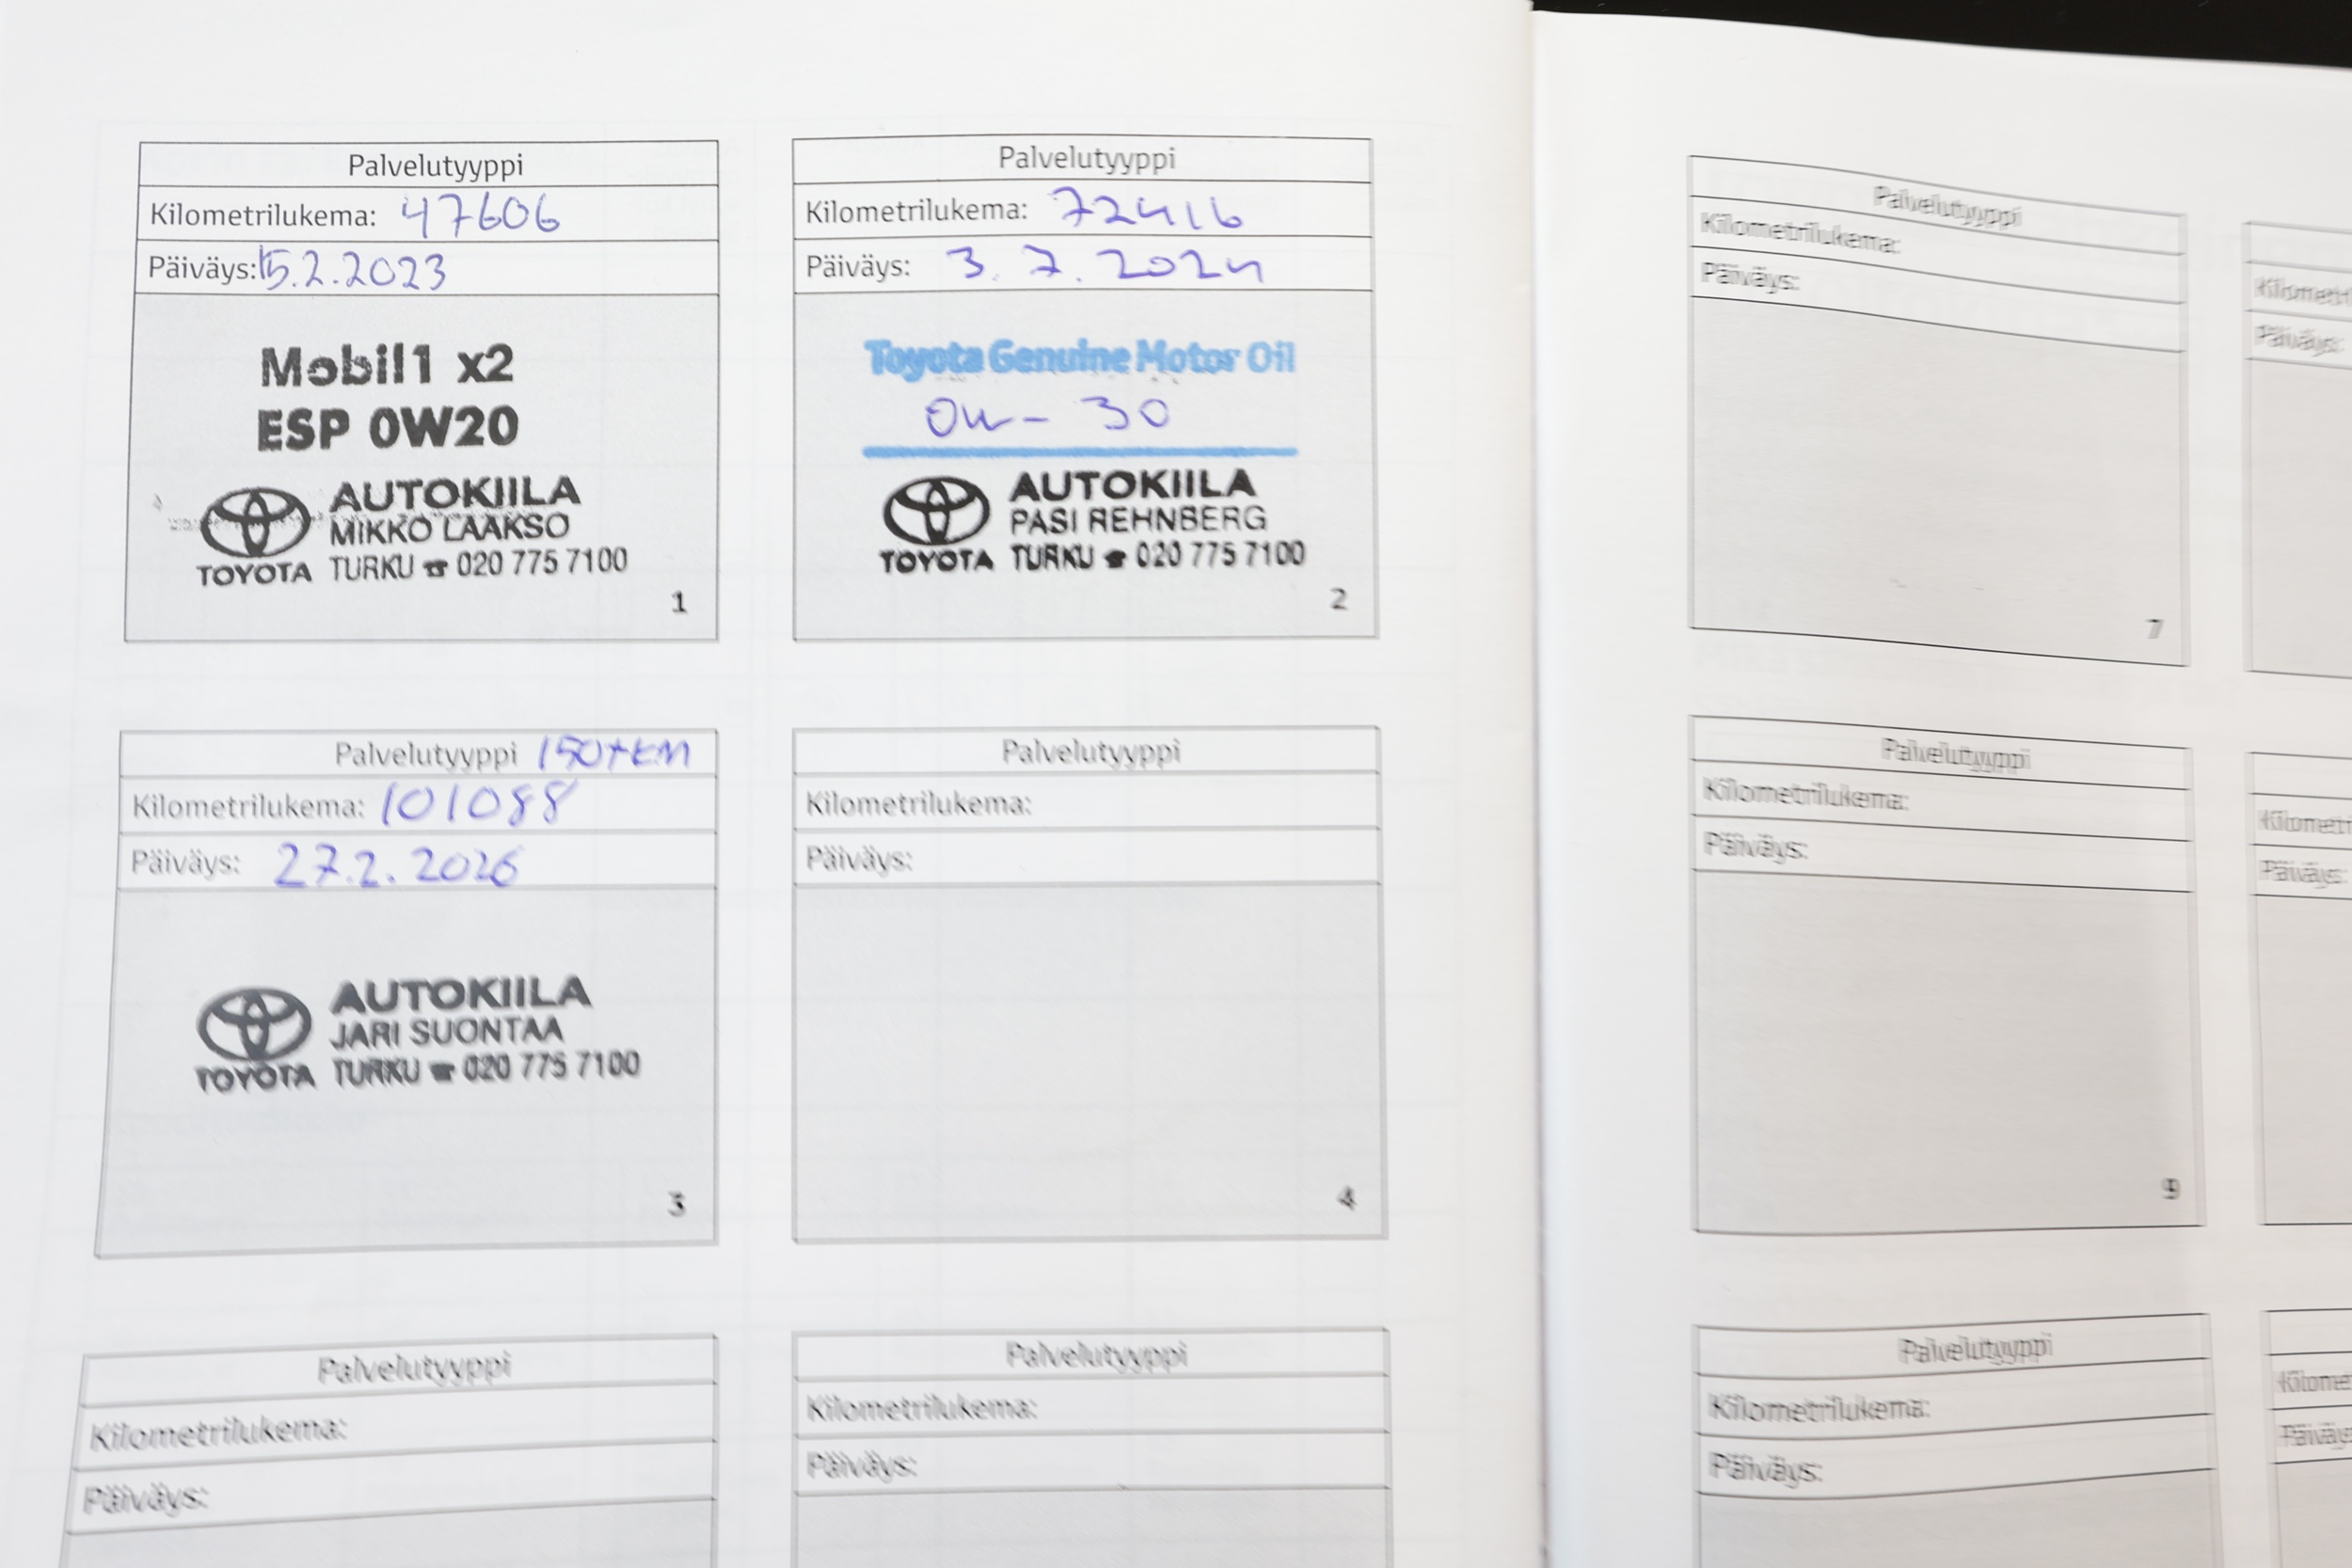 Palvelutyyppi
Kilometrilukema: 47606
Päiväys: 15.2.2023
Mobil1 x2
ESP 0W20
AUTOKIILA
MIKKO LAAKSO
TOYOTA TURKU ☎ 020 775 7100
1
Palvelutyyppi
Kilometrilukema: 72416
Päiväys: 3.7.2024
Toyota Genuine Motor Oil
0W-30
AUTOKIILA
PASI REHNBERG
TOYOTA TURKU ☎ 020 775 7100
2
Palvelutyyppi 150tkm
Kilometrilukema: 101088
Päiväys: 27.2.2026
AUTOKIILA
JARI SUONTAA
TOYOTA TURKU ☎ 020 775 7100
3
Palvelutyyppi
Kilometrilukema:
Päiväys:
4
Palvelutyyppi
Kilometrilukema:
Päiväys:
Palvelutyyppi
Kilometrilukema:
Päiväys:
Palvelutyyppi
Kilometrilukema:
Päiväys:
7
Kilomet
Päiväys:
Palvelutyyppi
Kilometrilukema:
Päiväys:
9
Kilomet
Päiväys:
Palvelutyyppi
Kilometrilukema:
Päiväys:
Kilome
Päiväy